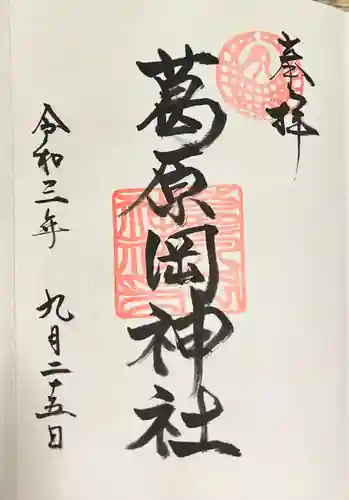 奉拝
葛原岡神社
令和三年 九月二十五日